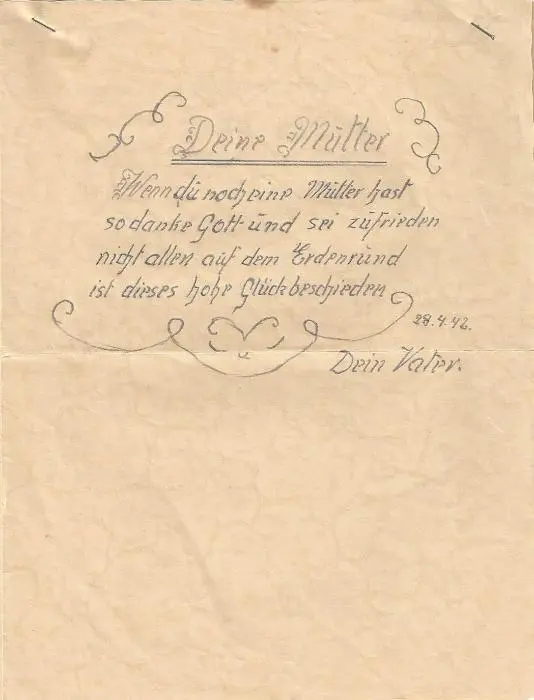 Deine Mutter
Wenn du noch eine Mutter hast
so danke Gott und sei zufrieden
nicht allen auf dem Erdenrund
ist dieses hohe Glück beschieden
28.4.42.
Dein Vater.